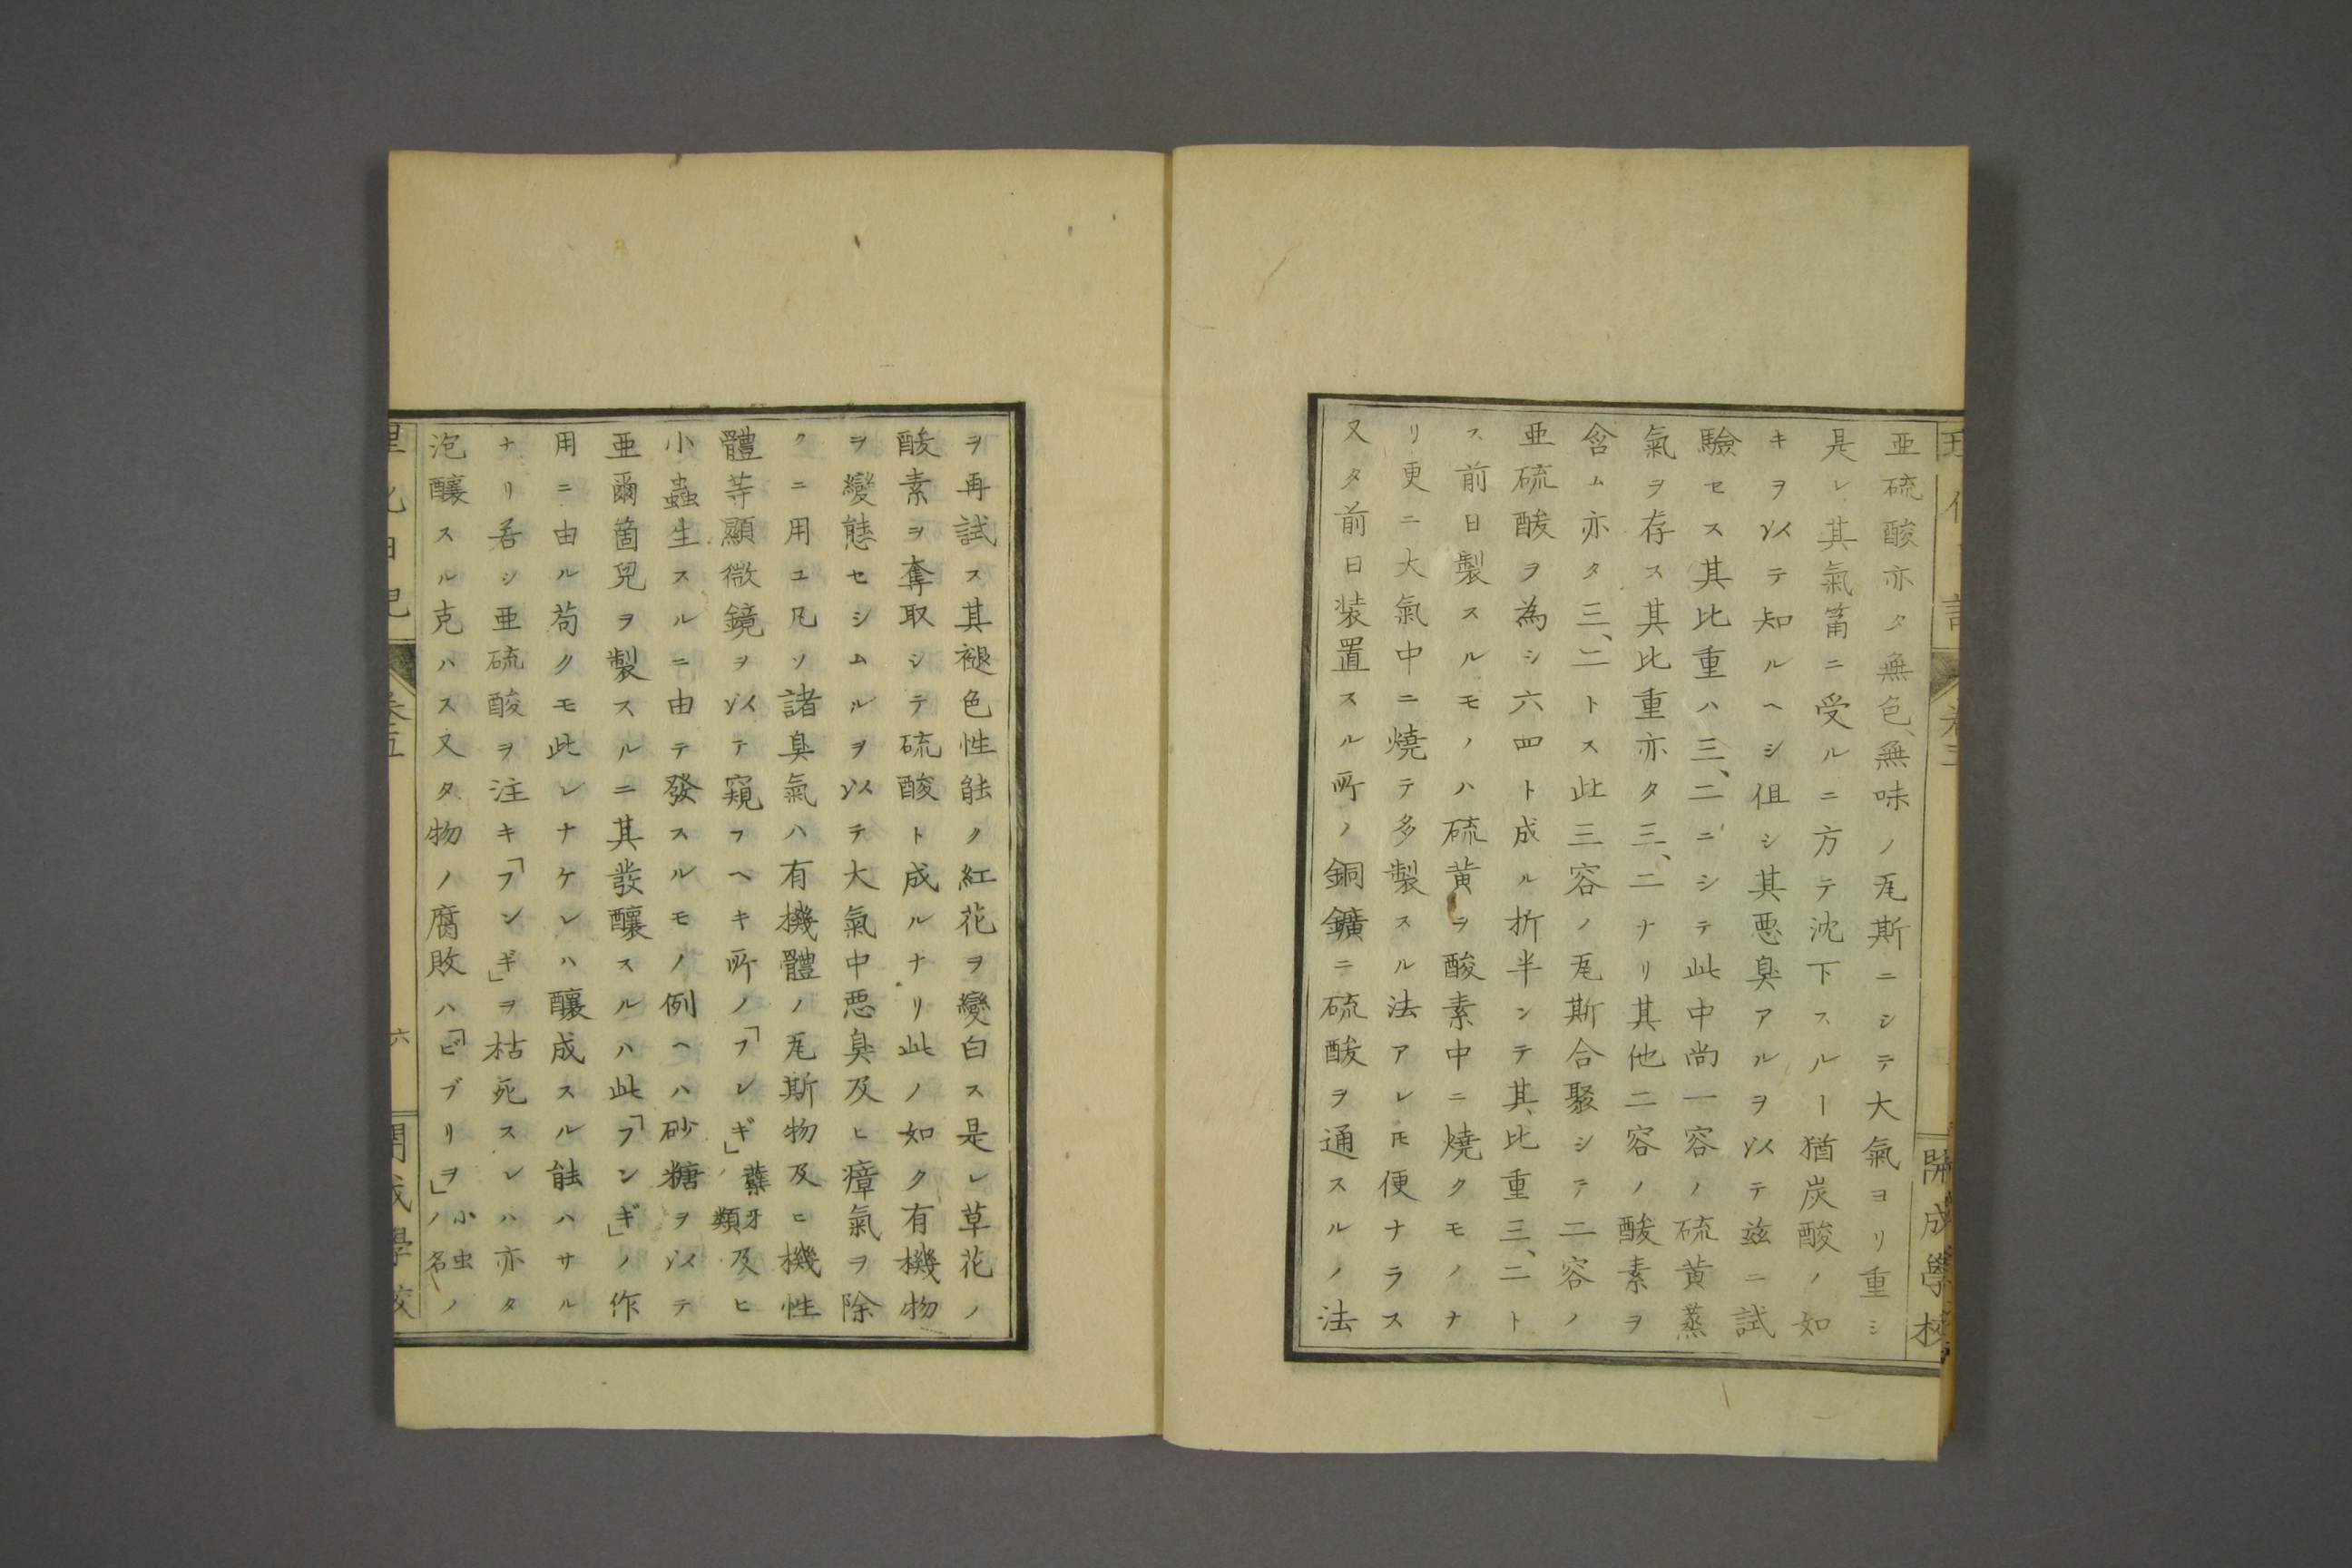 亜硫酸亦タ無色、無味ノ瓦斯ニシテ大氣ヨリ重シ
是レ其氣筩ニ受ルニ方テ沈下スルヿ猶炭酸ノ如
キヲ以テ知ルヘシ但シ其悪臭アルヲ以テ玆ニ試
驗セス其比重ハ三、二ニシテ此中尚一容ノ硫黄蒸
氣ヲ存ス其比重亦タ三、二ナリ其他二容ノ酸素ヲ
含ム亦タ三、二トス此三容ノ瓦斯合聚シテ二容ノ
亜硫酸ヲ為シ六四ト成ル折半シテ其比重三、二ト
ス前日製スルモノハ硫黄ヲ酸素中ニ燒クモノナ
リ更ニ大氣中ニ燒テ多製スル法アレ𪜈便ナラス
又タ前日装置スル所ノ銅鑛ニ硫酸ヲ通スルノ法
ヲ再試ス其褪色性能ク紅花ヲ變白ス是レ草花ノ
酸素ヲ奪取シテ硫酸ト成ルナリ此ノ如ク有機物
ヲ變態セシムルヲ以テ大氣中悪臭及ヒ瘴氣ヲ除
クニ用ユ凡ソ諸臭氣ハ有機體ノ瓦斯物及ヒ機性
體等顯微鏡ヲ以テ窺フヘキ所ノ「フレギ」蘖牙類及ヒ
小蟲生スルニ由テ發スルモノ例ヘハ砂糖ヲ以テ
亜爾箇兒ヲ製スルニ其發釀スルハ此「フンギ」ノ作
用ニ由ル苟クモ此レナケレハ釀成スル能ハサル
ナリ若シ亜硫酸ヲ注キ「フンギ」ヲ枯死スレハ亦タ
泡釀スル克ハス又タ物ノ腐敗ハ「ビブリヲ」小虫ノ名ノ
卷五
六
開成學校